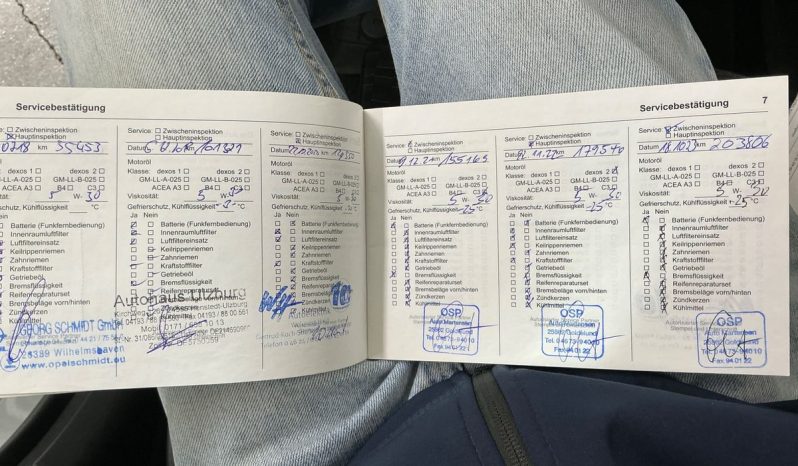 Servicebestätigung
Zwischeninspektion
Hauptinspektion
km 35453
Motoröl
Klasse: dexos 1 dexos 2
GM-LL-A-025 GM-LL-B-025
ACEA A3 B4 C3
Viskosität: 5 W- 30
Gefrierschutz, Kühlflüssigkeit °C
Ja Nein
Batterie (Funkfernbedienung)
Innenraumluftfilter
Luftfiltereinsatz
Keilrippenriemen
Zahnriemen
Kraftstofffilter
Getriebeöl
Bremsflüssigkeit
Reifenreparaturset
Bremsbeläge vorn/hinten
Zündkerzen
Kühlmittel
GEORG SCHMIDT GmbH
Wilhelmshaven
www.opelschmidt.eu
Service: Zwischeninspektion
Hauptinspektion
Datum km
Motoröl
Klasse: dexos 1 dexos 2
GM-LL-A-025 GM-LL-B-025
ACEA A3 B4 C3
Viskosität: 5 W-
Gefrierschutz, Kühlflüssigkeit °C
Ja Nein
Batterie (Funkfernbedienung)
Innenraumluftfilter
Luftfiltereinsatz
Keilrippenriemen
Zahnriemen
Kraftstofffilter
Getriebeöl
Bremsflüssigkeit
Reifenreparaturset
Bremsbeläge vorn/hinten
Zündkerzen
Kühlmittel
Autohaus Ulzburg
Service: Zwischeninspektion
Hauptinspektion
Datum km
Motoröl
Klasse: dexos 1 dexos 2
GM-LL-A-025 GM-LL-B-025
ACEA A3 B4 C3
Viskosität: W-
Gefrierschutz, Kühlflüssigkeit °C
Ja Nein
Batterie (Funkfernbedienung)
Innenraumluftfilter
Luftfiltereinsatz
Keilrippenriemen
Zahnriemen
Kraftstofffilter
Getriebeöl
Bremsflüssigkeit
Reifenreparaturset
Bremsbeläge vorn/hinten
Zündkerzen
Kühlmittel
Servicebestätigung 7
Service: Zwischeninspektion
Hauptinspektion
Datum km 155169
Motoröl
Klasse: dexos 1 dexos 2
GM-LL-A-025 GM-LL-B-025
ACEA A3 B4 C3
Viskosität: 5 W- 30
Gefrierschutz, Kühlflüssigkeit -25 °C
Ja Nein
Batterie (Funkfernbedienung)
Innenraumluftfilter
Luftfiltereinsatz
Keilrippenriemen
Zahnriemen
Kraftstofffilter
Getriebeöl
Bremsflüssigkeit
Reifenreparaturset
Bremsbeläge vorn/hinten
Zündkerzen
Kühlmittel
OSP
Tel. 0 46 73 - 9 40 10
Fax 94 01 22
Service: Zwischeninspektion
Hauptinspektion
Datum km 179570
Motoröl
Klasse: dexos 1 dexos 2
GM-LL-A-025 GM-LL-B-025
ACEA A3 B4 C3
Viskosität: 5 W- 30
Gefrierschutz, Kühlflüssigkeit -25 °C
Ja Nein
Batterie (Funkfernbedienung)
Innenraumluftfilter
Luftfiltereinsatz
Keilrippenriemen
Zahnriemen
Kraftstofffilter
Getriebeöl
Bremsflüssigkeit
Reifenreparaturset
Bremsbeläge vorn/hinten
Zündkerzen
Kühlmittel
OSP
Tel. 0 46 73 - 9 40 10
Fax 94 01 22
Service: Zwischeninspektion
Hauptinspektion
Datum km 203806
Motoröl
Klasse: dexos 1 dexos 2
GM-LL-A-025 GM-LL-B-025
ACEA A3 B4 C3
Viskosität: 5 W-
Gefrierschutz, Kühlflüssigkeit -25 °C
Ja Nein
Batterie (Funkfernbedienung)
Innenraumluftfilter
Luftfiltereinsatz
Keilrippenriemen
Zahnriemen
Kraftstofffilter
Getriebeöl
Bremsflüssigkeit
Reifenreparaturset
Bremsbeläge vorn/hinten
Zündkerzen
Kühlmittel
OSP
Tel. 0 46 73 - 9 40 10
Fax 94 01 22